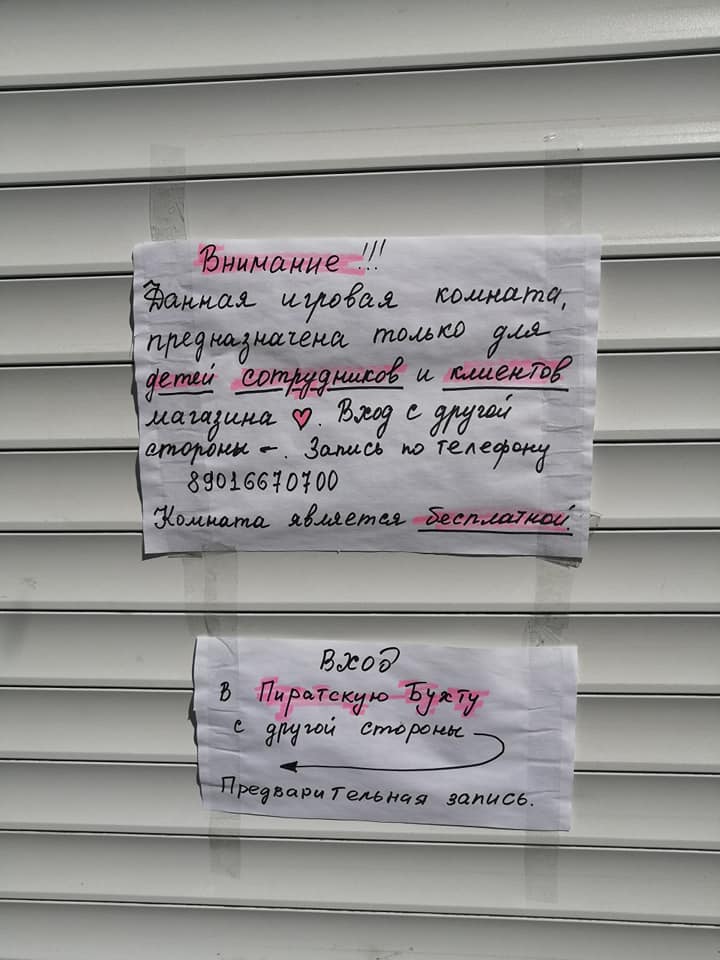 Внимание!!!
Данная игровая комната,
предназначена только для
детей сотрудников и клиентов
магазина ♥. Вход с другой
стороны –. Запись по телефону
89016670700
Комната является бесплатной.
Вход
в Пиратскую Бухту
с другой стороны
Предварительная запись.